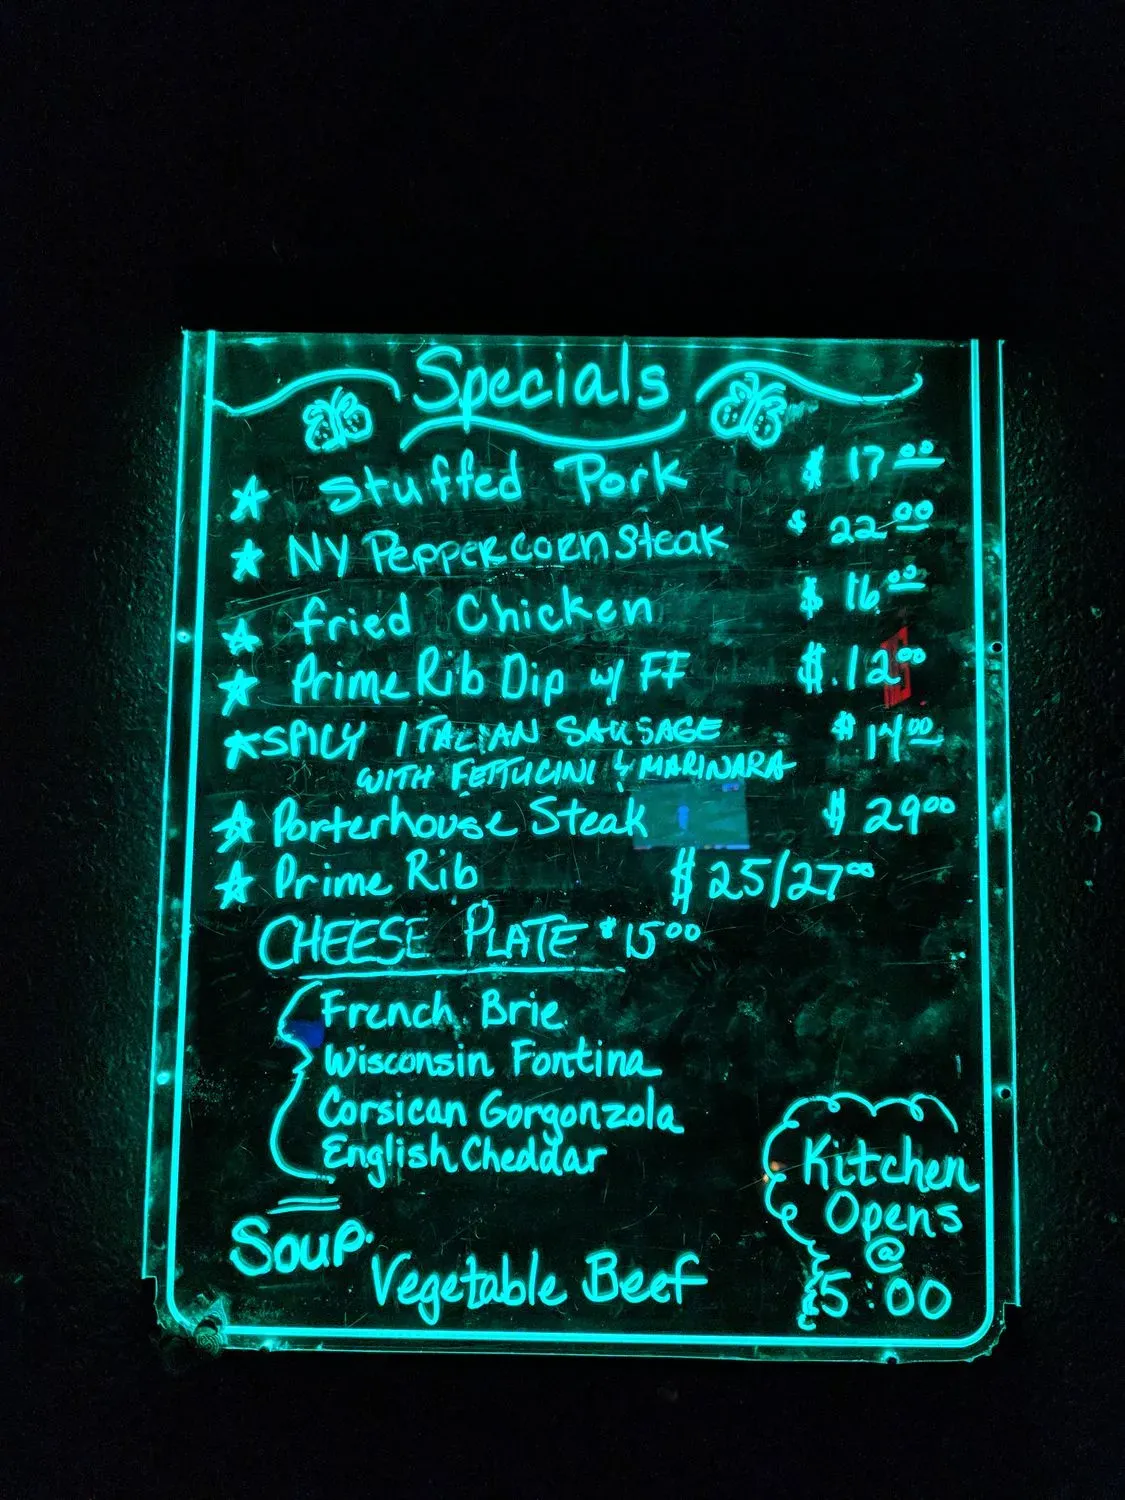 Specials
Stuffed Pork $17.00
NY Peppercorn Steak $22.00
fried Chicken $16.00
Prime Rib Dip w/ FF $.12.00
SPICY ITALIAN SAUSAGE $14.00
WITH FETTUCINI & MARINARA
Porterhouse Steak $29.00
Prime Rib $25/27.00
CHEESE PLATE $15.00
French Brie
Wisconsin Fontina
Corsican Gorgonzola
English Cheddar
Soup:
Vegetable Beef
Kitchen
Opens
@
5:00